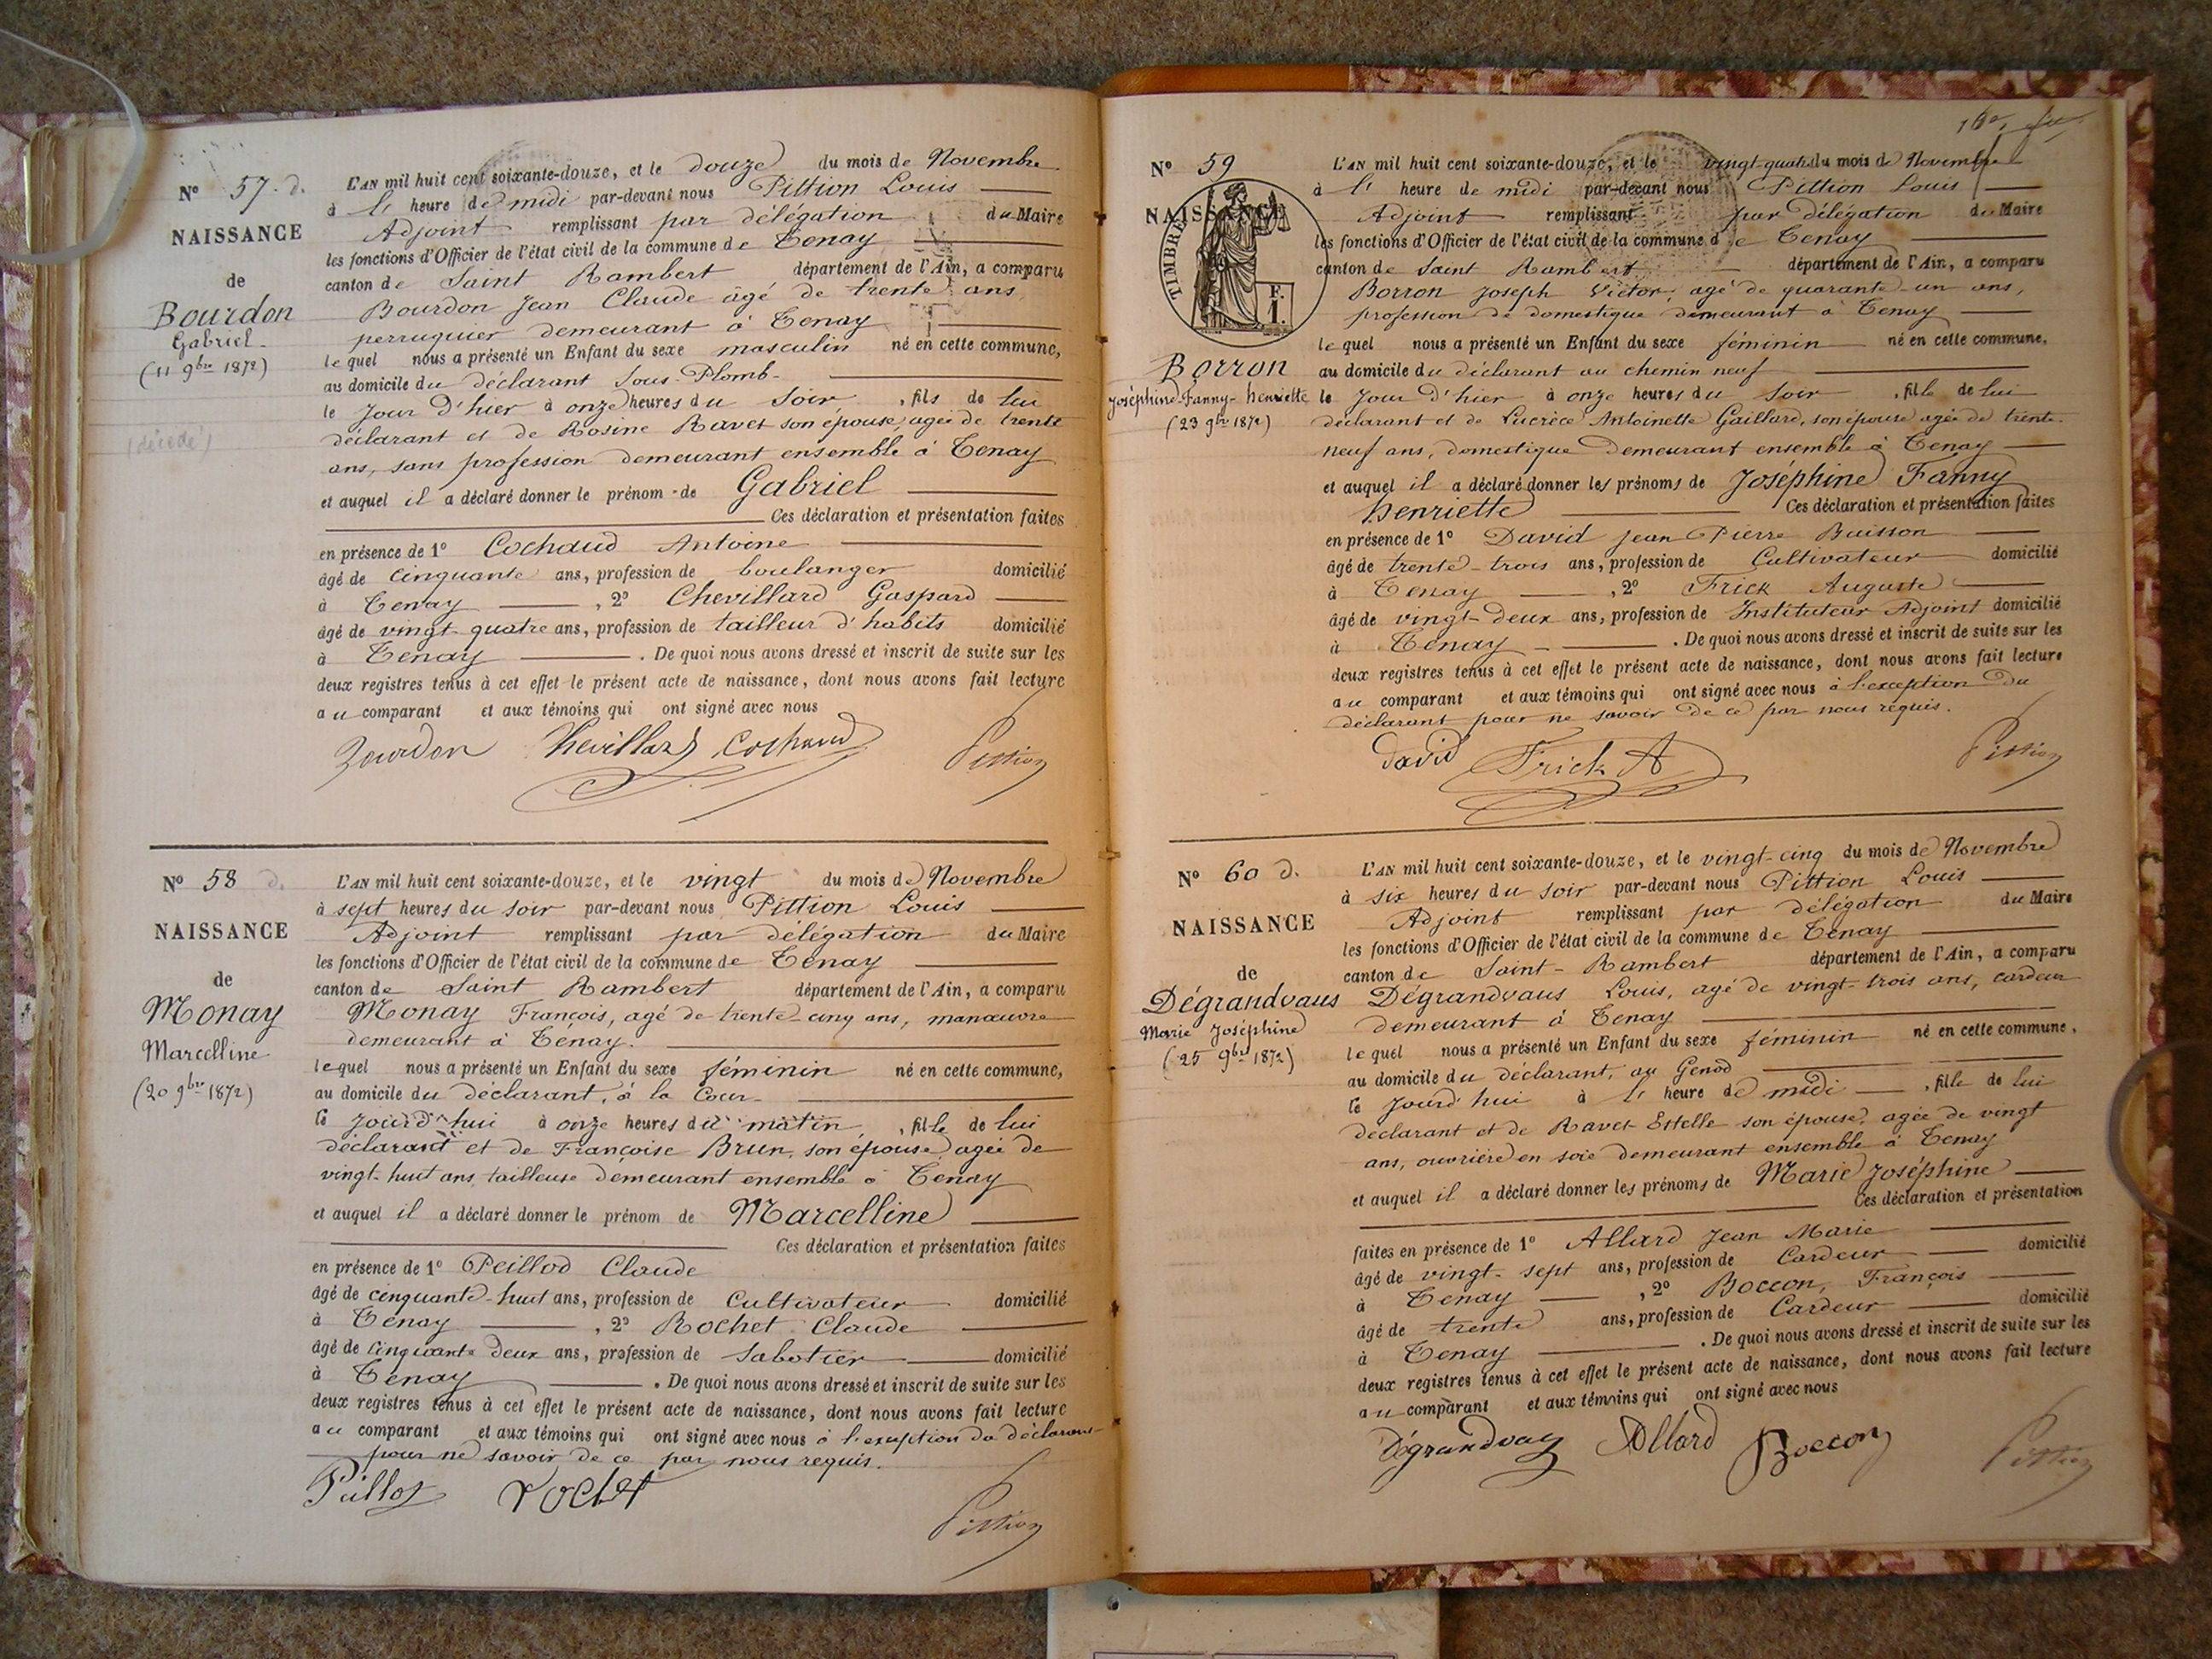 Nº 57. d.
NAISSANCE
de
Bourdon
Gabriel
(11 9bre 1872)
(décédé)
L'AN mil huit cent soixante-douze, et le douze du mois de Novembre
à l' heure de midi par-devant nous Pittion Louis
Adjoint remplissant par délégation du Maire
les fonctions d'Officier de l'état civil de la commune de Tenay
canton de Saint Rambert département de l'Ain, a comparu
Bourdon Jean Claude âgé de trente ans
perruquier demeurant à Tenay
lequel nous a présenté un Enfant du sexe masculin né en cette commune,
au domicile du déclarant Sous-Plomb-
le jour d'hier à onze heures du soir, fils de lui
déclarant et de Rosine Ravet son épouse, agée de trente
ans, sans profession demeurant ensemble à Tenay
et auquel il a déclaré donner le prénom de Gabriel
Ces déclaration et présentation faites
en présence de 1º Cochaud Antoine
âgé de cinquante ans, profession de boulanger domicilié
à Tenay, 2º Chevillard Gaspard
âgé de vingt-quatre ans, profession de tailleur d'habits domicilié
à Tenay. De quoi nous avons dressé et inscrit de suite sur les
deux registres tenus à cet effet le présent acte de naissance, dont nous avons fait lecture
au comparant et aux témoins qui ont signé avec nous
Bourdon Chevillard Cochaud Pittion
Nº 58 d.
NAISSANCE
de
Monay
Marcelline
(20 9bre 1872)
L'AN mil huit cent soixante-douze, et le vingt du mois de Novembre
à sept heures du soir par-devant nous Pittion Louis
Adjoint remplissant par délégation du Maire
les fonctions d'Officier de l'état civil de la commune de Tenay
canton de Saint Rambert département de l'Ain, a comparu
Monay François, agé de trente-cinq ans, manœuvre
demeurant à Ténay.
lequel nous a présenté un Enfant du sexe féminin né en cette commune,
au domicile du déclarant, à la Cour-
le jourd'hui à onze heures du matin, fille de lui
déclarant et de Françoise Brun, son épouse, agée de
vingt-huit ans, tailleuse demeurant ensemble à Tenay
et auquel il a déclaré donner le prénom de Marcelline
Ces déclaration et présentation faites
en présence de 1º Peillod Claude
âgé de cinquante-huit ans, profession de Cultivateur domicilié
à Tenay, 2º Rochet Claude
âgé de cinquante deux ans, profession de Sabotier domicilié
à Tenay. De quoi nous avons dressé et inscrit de suite sur les
deux registres tenus à cet effet le présent acte de naissance, dont nous avons fait lecture
au comparant et aux témoins qui ont signé avec nous à l'exception du déclarant
pour ne savoir de ce par nous requis.
Rochet Pittion
Nº 59
NAISSANCE
TIMBRE
F.
1.
Borron
Joséphine-Fanny-henriette
(23 9bre 1872)
L'AN mil huit cent soixante-douze, et le vingt-quatre du mois de Novembre
à l' heure de midi par-devant nous Pittion Louis
Adjoint remplissant par délégation du Maire
les fonctions d'Officier de l'état civil de la commune de Tenay
canton de Saint Rambert département de l'Ain, a comparu
Borron Joseph Victor, agé de quarante-un ans,
profession de domestique demeurant à Tenay
lequel nous a présenté un Enfant du sexe féminin né en cette commune.
au domicile du déclarant au chemin neuf
le jour d'hier à onze heures du soir, fille de lui
déclarant et de Lucrèce Antoinette Gaillard, son épouse agée de trente-
neuf ans, domestique demeurant ensemble à Tenay
et auquel il a déclaré donner les prénoms de Joséphine Fanny
henriette Ces déclaration et présentation faites
en présence de 1º David Jean Pierre Buisson
âgé de trente-trois ans, profession de Cultivateur domicilié
à Tenay, 2º Frick Auguste
âgé de vingt-deux ans, profession de Instituteur Adjoint domicilié
à Tenay. De quoi nous avons dressé et inscrit de suite sur les
deux registres tenus à cet effet le présent acte de naissance, dont nous avons fait lecture
au comparant et aux témoins qui ont signé avec nous à l'exception du
déclarant pour ne savoir de ce par nous requis.
David Frick A Pittion
Nº 60 d.
NAISSANCE
de
Dégrandvaus
Marie Joséphine
(25 9bre 1872)
L'AN mil huit cent soixante-douze, et le vingt-cinq du mois de Novembre
à six heures du soir par-devant nous Pittion Louis
Adjoint remplissant par délégation du Maire
les fonctions d'Officier de l'état civil de la commune de Tenay
canton de Saint-Rambert département de l'Ain, a comparu
Dégrandvaus Louis, agé de vingt-trois ans, cardeur
demeurant à Tenay
lequel nous a présenté un Enfant du sexe féminin né en cette commune,
au domicile du déclarant, au Genod
le jourd'hui à l' heure de midi, fille de lui
déclarant et de Ravet Estelle son épouse, agée de vingt
ans, ouvrière en soie demeurant ensemble à Tenay
et auquel il a déclaré donner les prénoms de Marie Joséphine
Ces déclaration et présentation
faites en présence de 1º Allard Jean Marie
âgé de vingt-sept ans, profession de Cardeur domicilié
à Tenay, 2º Boccon, François
âgé de trente ans, profession de Cardeur domicilié
à Tenay. De quoi nous avons dressé et inscrit de suite sur les
deux registres tenus à cet effet le présent acte de naissance, dont nous avons fait lecture
au comparant et aux témoins qui ont signé avec nous
Dégrandvaus Allard Boccon Pittion